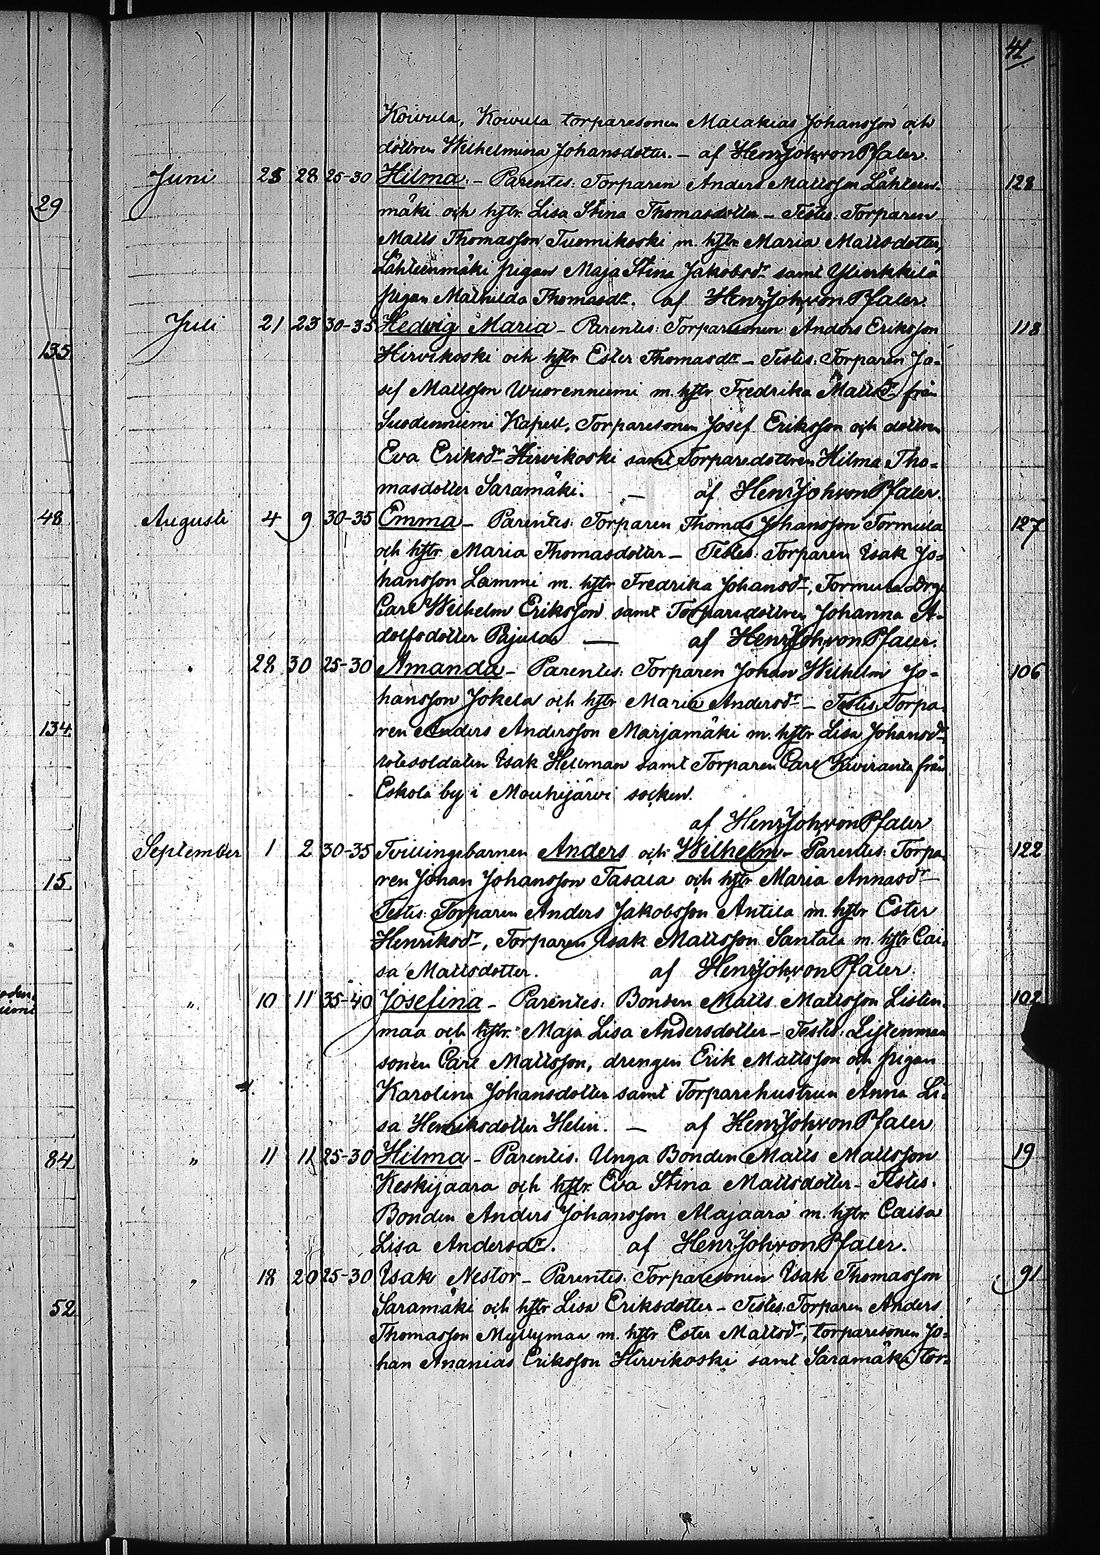 41
Koivula, Koivula torparesonen Malakias Johansson och
dottren Wilhelmina Johansdotter. – af HenrJohvonPfaler.
Juni 25 28 25-30 Hilma. – Parentes: Torparen Anders Mattsson Lähteen- 128
29
mäki och hstr. Lisa Stina Thomasdotter – Testes: Torparen
Matts Thomasson Tuomikoski m. hstr Maria Mattsdotter,
Lähteenmäki pigan Maja Stina Jakobsdr samt Ylierkkilä
pigan Mathilda Thomasdr. af HenrJohvonPfaler
Juli 21 25 30-35 Hedvig Maria – Parentes: Torparesonen Anders Eriksson 118
135
Hirvikoski och hstr Ester Thomasdr – Testes: Torparen Jo-
sef Mattsson Wuorenniemi m. hstr Fredrika Mattsdr från
Suodenniemi Kapell, Torparesonen Josef Eriksson och dottren
Eva Eriksdr Hirvikoski samt Torparedottren Hilma Tho-
masdotter Saramäki. – af HenrJohvonPfaler.
48 Augusti 4 9 30-35 Emma – Parentes: Torparen Thomas Johansson Tormula 127
och hstr Maria Thomasdotter – Testes: Torparen Isak Jo-
hansson Lammi m. hstr Fredrika Johansdr, Tormula Drg
Carl Wilhelm Eriksson samt Torparedottren Johanna A-
dolfsdotter Pajula — af HenrJohvonPfaler.
" 28 30 25-30 Amanda – Parentes: Torparen Johan Wilhelm Jo- 106
hansson Jokela och hstr Maria Andersdr – Testes: Torpa-
134
ren Anders Andersson Marjamäki m. hstr Lisa Johansdr,
rotesoldaten Isak Hellman samt Torparen Carl Kiviranta från
Eskola by i Mouhijärvi socken.
af HenrJohvonPfaler
September 1 2 30-35 Tvillingebarnen Anders och Wilhelm – Parentes: Torpa- 122
15
ren Johan Johansson Tasala och hstr Maria Annasdr –
Testes: Torparen Anders Jakobsson Antila m. hstr Ester
Henriksdr, Torparen Isak Mattsson Santala m. hstr Cai-
sa Mattsdotter. af HenrJohvonPfaler.
" 10 11 35-40 Josefina – Parentes: Bonden Matts Mattsson Listen- 102
maa och hstr. Maja Lisa Andersdotter – Testes: Listenmaa
sonen Carl Mattsson, drengen Erik Mattsson och pigan
Karolina Johansdotter samt Torparehustrun Anna Li-
sa Henriksdotter Helin. – af HenrJohvonPfaler
84 " 11 11 25-30 Hilma – Parentes: Unga Bonden Matts Mattsson 19
Keskijaara och hstr. Eva Stina Mattsdotter – Testes:
Bonden Anders Johansson Alajaara m. hstr. Caisa
Lisa Andersdr. af HenrJohvonPfaler.
" 18 20 25-30 Isak Nestor – Parentes: Torparesonen Isak Thomasson 91
52
Saramäki och hstr Lisa Eriksdotter – Testes: Torparen Anders
Thomasson Myllymaa m. hstr Ester Mattsdr, torparesonen Jo-
han Ananias Eriksson Hirvikoski samt Saramäki tor-